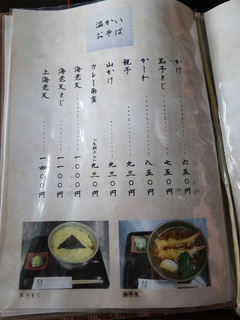 温かい
おそば
かけ 六五〇円
玉子とじ 七五〇円
かしわ 八五〇円
親子 九三〇円
山かけ 九三〇円
カレー南蛮 九三〇円
海老天 一〇〇〇円
海老天とじ 一〇〇〇円
上海老天 一四〇〇円
玉子とじ
海老天